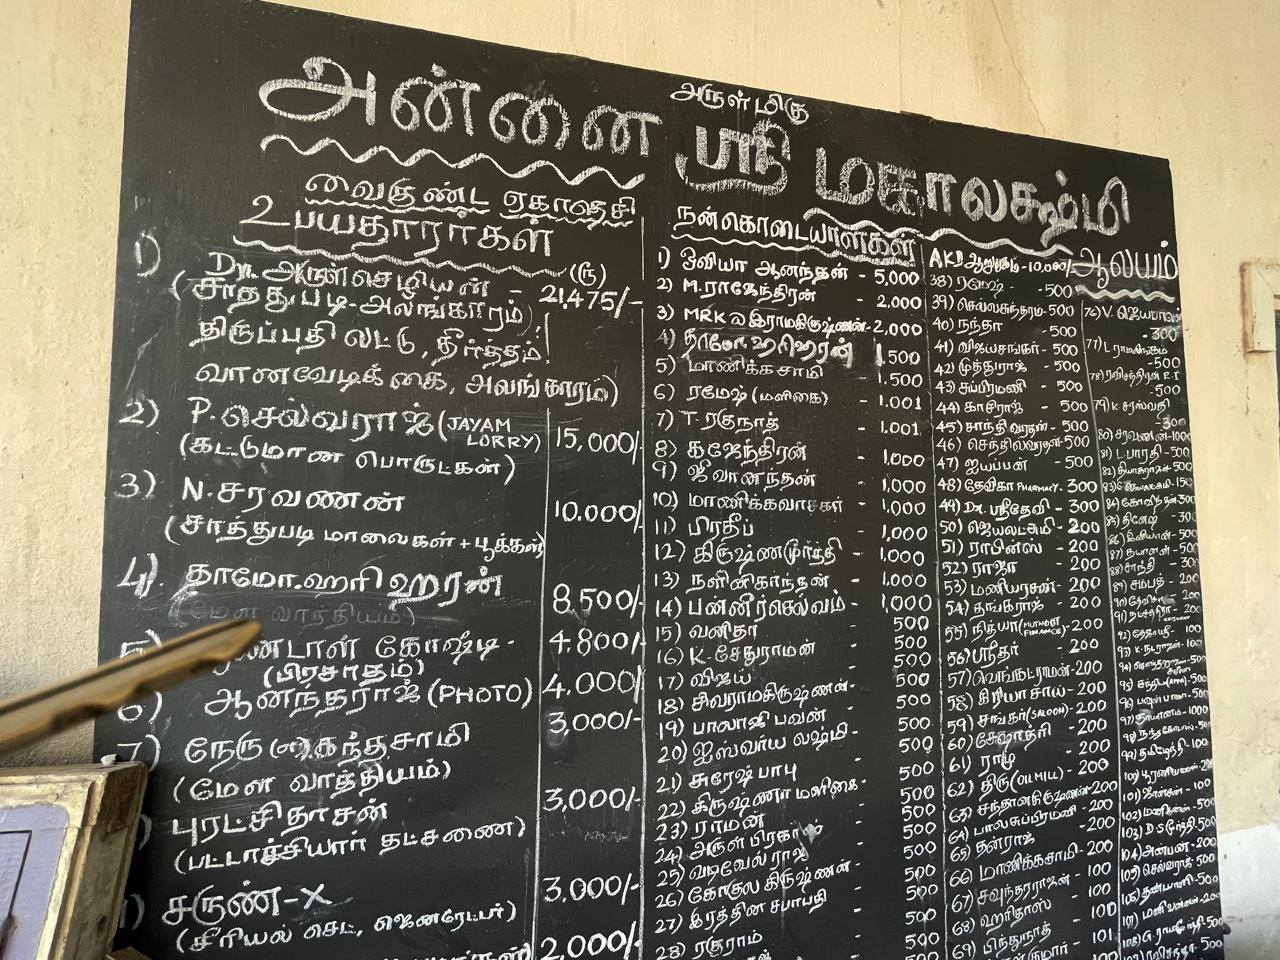 அருள்மிகு
அன்னை ஸ்ரீ மஹாலக்ஷ்மி
ஆலயம்
வைகுண்ட ஏகாதெசி
உபயதாரர்கள்
(ரூ)
1) Dr. அருள்செழியன் - 21,475/-
(சாத்துபடி-அலங்காரம்,
திருப்பதி லட்டு, தீர்த்தம்,
வானவேடிக்கை, அலங்காரம்)
2) P. செல்வராஜ் (JAYAM LORRY) 15,000/-
(கட்டுமான பொருட்கள்)
3) N. சரவணன் 10.000/-
(சாத்துபடி மாலைகள் + பூக்கள்)
4). தாமோ.ஹரிஹரண் 8,500/-
(மேள வாத்தியம்)
5) கோஷ்டி - 4.800/-
(பிரசாதம்)
6) ஆனந்தராஜ் (PHOTO) 4,000/-
7) நேரு 3,000/-
(மேள வாத்தியம்)
புரட்சிதாசன் 3,000/-
(பட்டாச்சியார் தட்சணை)
சருண்-X 3.000/-
(சீரியல் செட், ஜெனரேட்டர்)
2,000/-
நன்கொடையாளர்கள்
1) ஓவியா ஆனந்தன் - 5,000
2) M. ராஜேந்திரன் - 2,000
3) MRK இராமகிருஷ்ணன் - 2,000
4) தாமோ.ஹரிஹரன் 1,500
5) மாணிக்கசாமி - 1,500
6) ரமேஷ் (மளிகை) - 1,001
7) T. ரகுநாத் - 1,001
8) கஜேந்திரன் - 1,000
9) ஜீவானந்தன் - 1,000
10) மாணிக்கவாசகர் - 1,000
11) பிரதீப் - 1,000
12) கிருஷ்ணமூர்த்தி - 1,000
13) நளினிகாந்தன் - 1,000
14) பன்னீர்செல்வம் - 1,000
15) வனிதா - 500
16) K. சேதுராமன் - 500
17) விஜய் - 500
18) சிவராமகிருஷ்ணன் - 500
19) பாலாஜி பவன் - 500
20) ஐஸ்வர்ய லஷ்மி - 500
21) சுரேஷ் பாபு - 500
22) கிருஷ்ணா மளிகை - 500
23) ராமன் - 500
24) அருள் பிரகாஷ் - 500
25) வடிவேல் ராஜ் - 500
26) கோகுல கிருஷ்ணன் - 500
27) இரத்தின சபாபதி - 500
28) ரகுராம் - 500
AKD ஆறுமுகம் - 10,000/-
38) ரமேஷ் - 500
39) செல்வசுந்தரம் - 500
40) நந்தா - 500
41) விஜயசங்கர் - 500
42) முத்துராஜ் - 500
43) சுப்பிரமணி - 500
44) காசிராஜ் - 500
45) சாந்தி வரதன் - 500
46) செந்தில்வரதன் - 500
47) ஐயப்பன் - 500
48) தேவிகா PHARMACY - 300
49) Dr. ஸ்ரீதேவி - 300
50) ஜெயலட்சுமி - 200
51) ராபின்ஸ் - 200
52) ராஜா - 200
53) மணியரசன் - 200
54) தங்கராஜ் - 200
55) நித்யா (MUTHOOT FINANCE) - 200
56) ஸ்ரீதர் - 200
57) வெங்கட்ராமன் - 200
58) கிரியா சாய் - 200
59) சங்கர் (SALOON) - 200
60) சேஷாத்ரி - 200
61) ராமு - 200
62) திரு (OIL MILL) - 200
63) சந்தானகிருஷ்ணன் - 200
64) பாலசுப்பிரமணி - 200
65) தன்ராஜ் - 200
66) மாணிக்கசாமி - 200
67) சவுந்தரராஜன் - 100
68) ஹரிதாஸ் - 100
69) பிந்துநாத் - 100
101
76) V. ஜெயபாலன் - 300
77) L. ராமலிங்கம் - 500
78) ரவிச்சந்திரன் E.I - 500
79) K. சரஸ்வதி - 300
80) சரவணன் - 1000
81) L. பாரதி - 500
82) தியாகராஜன் - 500
84) கோவிந்தன் - 300
85) தினேஷ் - 300
87) தயாளன் - 500
88) சாந்தி - 300
89) சம்பத் - 200
93) K. நடராஜன் - 100
99) தமிழ்ந்தி - 100
104) அன்பன் - 200
105) செல்வராஜ் - 500